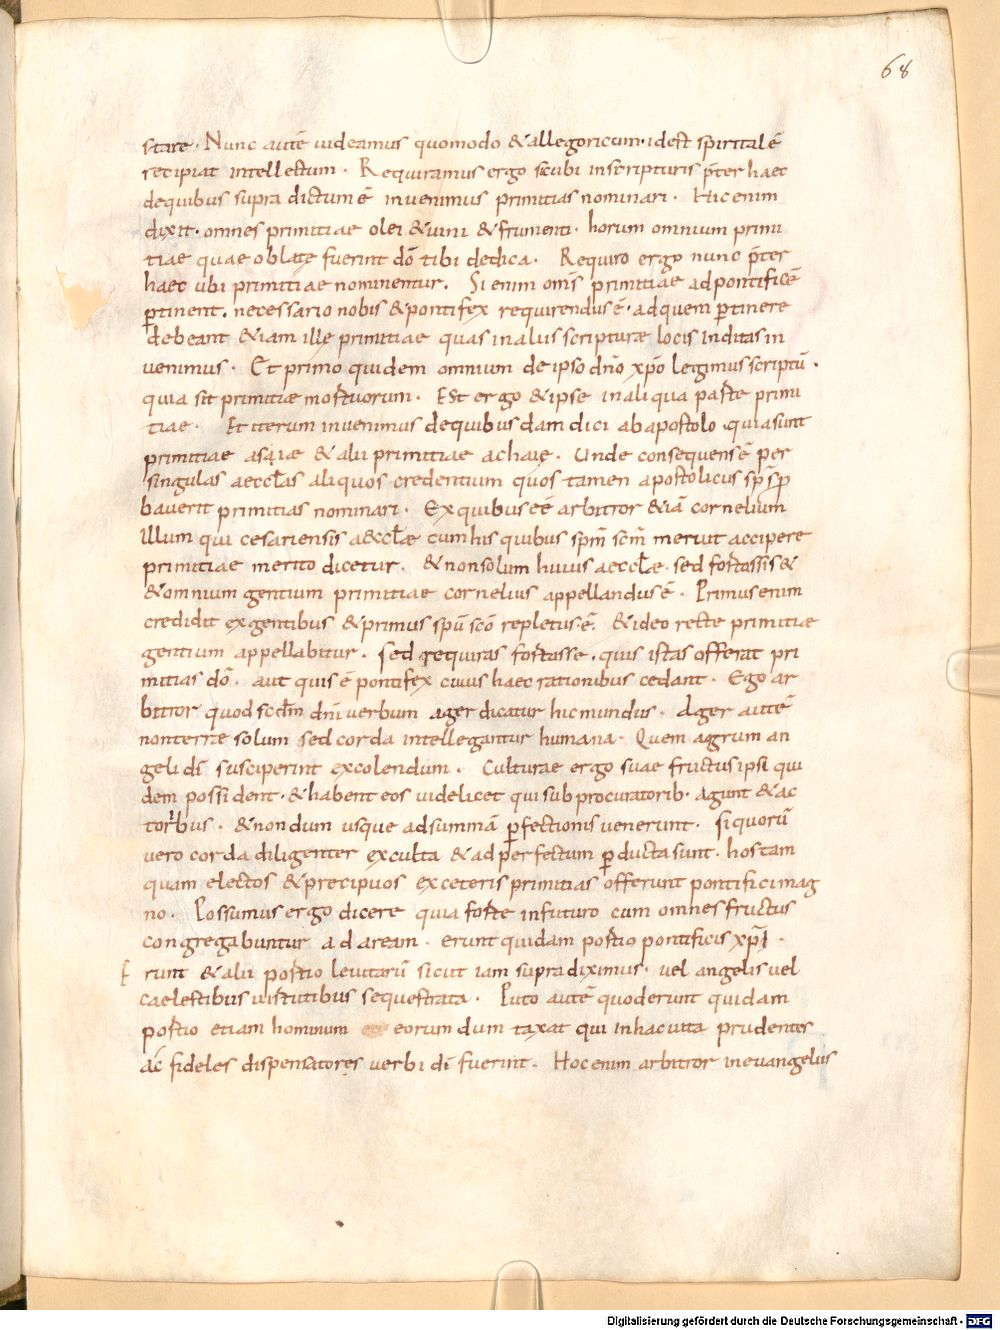 68
stare. Nunc autē uideamus quomodo &allegoricum. idest spiritalē
recipiat intellectum. Requiramus ergo sicubi inscripturis p̄ter haec
dequibus supra dictumē inuenimus primitias nominari. Hicenim
dixit. omnes primitiae olei &uini &frumenti. horum omnium primi
tiae quae oblatę fuerint dō tibi dedica. Requiro ergo nunc p̄ter
haec ubi primitiae nominentur. Si enim om̄s primitiae adpontificē
ꝑtinent. necessario nobis &pontifex requirendusē. adquem ꝑtinere
debeant &iam illę primitiae quas inaliis scripturae locis inditas in
uenimus. Et primo quidem omnium deipso dn̄o xp̄o legimus scriptū.
quia sit primitiae mortuorum. Est ergo &ipse inaliqua parte primi
tiae. Et iterum inuenimus dequibusdam dici abapostolo quiasunt
primitiae asąiae &alii primitiae achaię. Unde consequensē per
singulas aeccl̄as aliquos credentium quos tamen apostolicus sp̄s p
bauerit primitias nominari. Exquibus eē arbitror &iā cornelium
illum qui cesariensis aeccl̄ae cumhis quibus sp̄m sc̄m meruit accipere
primitiae merito dicetur. &nonsolum huius aeccl̄ae. sed fortassis &
&omnium gentium primitiae cornelius appellandusē. Primusenim
credidit exgentibus &primus spū scō repletusē. &ideo recte primitię
gentium appellabitur. sed requiras fortasse. quis istas offerat pri
mitias dō. aut quis ē pontifex cuius haec rationibus cedant. Ego ar
bitror quod scdm̄ dn̄i uerbum ager dicatur hicmundus. Ager autē
nonterrae solum sed corda intellegantur humana. Quem agrum an
geli dī susciperint excolendum. Culturae ergo suae fructus ipsi qui
dem possident. &habent eos uidelicet qui sub procuratorib. agunt &ac
toribus. &nondum usque adsummā ꝑfectionis uenerunt. siquorū
uero corda diligenter exculta &adperfectum ꝑductasunt. hos tam
quam electos &precipuos exceteris primitias offerunt pontifici mag
no. Possumus ergo dicere quia forte infuturo cum omnes fructus
congregabuntur ad aream. erunt quidam portio pontificis xp̄i.
Erunt &alii portio leuitarū sicut iam supra diximus. uel angelis uel
caelestibus uirtutibus sequestrata. Puto autē quoderunt quidam
portio etiam hominum eorum dum taxat qui inhac uita prudentes
ac fideles dispensatores uerbi dī fuerint. Hocenim arbitror ineuangeliis
Digitalisierung gefördert durch die Deutsche Forschungsgemeinschaft - DFG